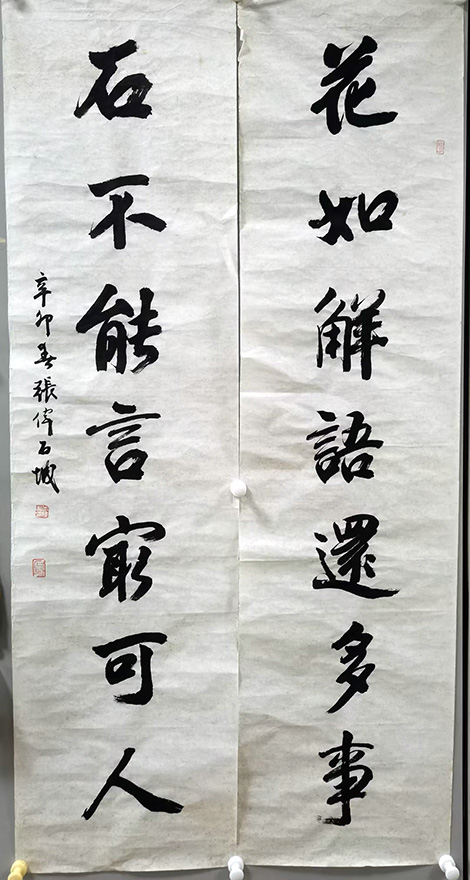 花如解語還多事
石不能言最可人
辛卯春張偉石城